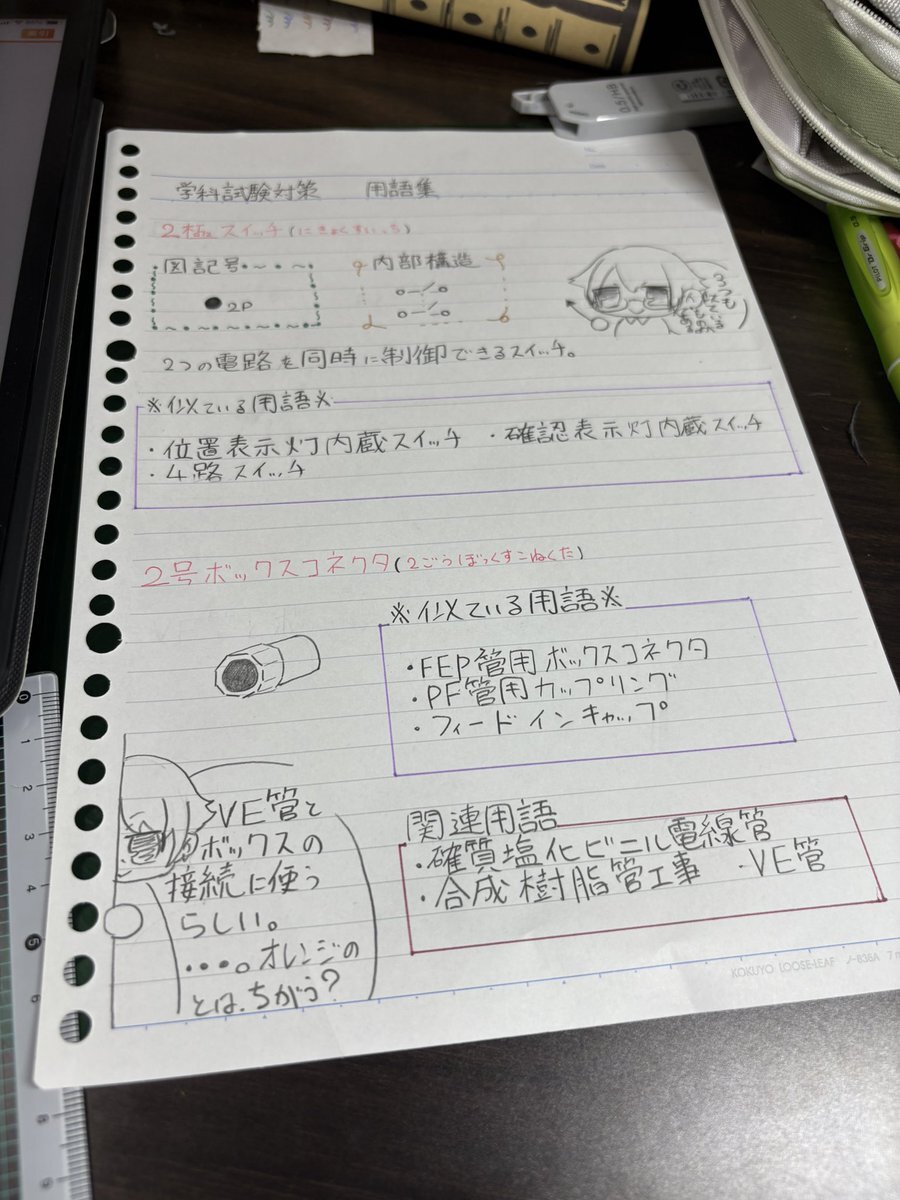 学科試験対策　用語集
2極スイッチ(にきょくすいっち)
図記号
内部構造
2P
2つの電路を同時に制御できるスイッチ。
※似ている用語※
・位置表示灯内蔵スイッチ ・確認表示灯内蔵スイッチ
・4路スイッチ
2号ボックスコネクタ(2ごうぼっくすこねくた)
※似ている用語※
・FEP管用ボックスコネクタ
・PF管用カップリング
・フィードインキャップ
VE管と
ボックスの
接続に使う
らしい。
・・・。オレンジの
とは、ちがう?
関連用語
・確質塩化ビニル電線管
・合成樹脂管工事 ・VE管
KOKUYO LOOSE-LEAF J-836A 7
0.5/HB
PILOT Dr.Grip
索引
0
1
2
3
4
5
6
8
9